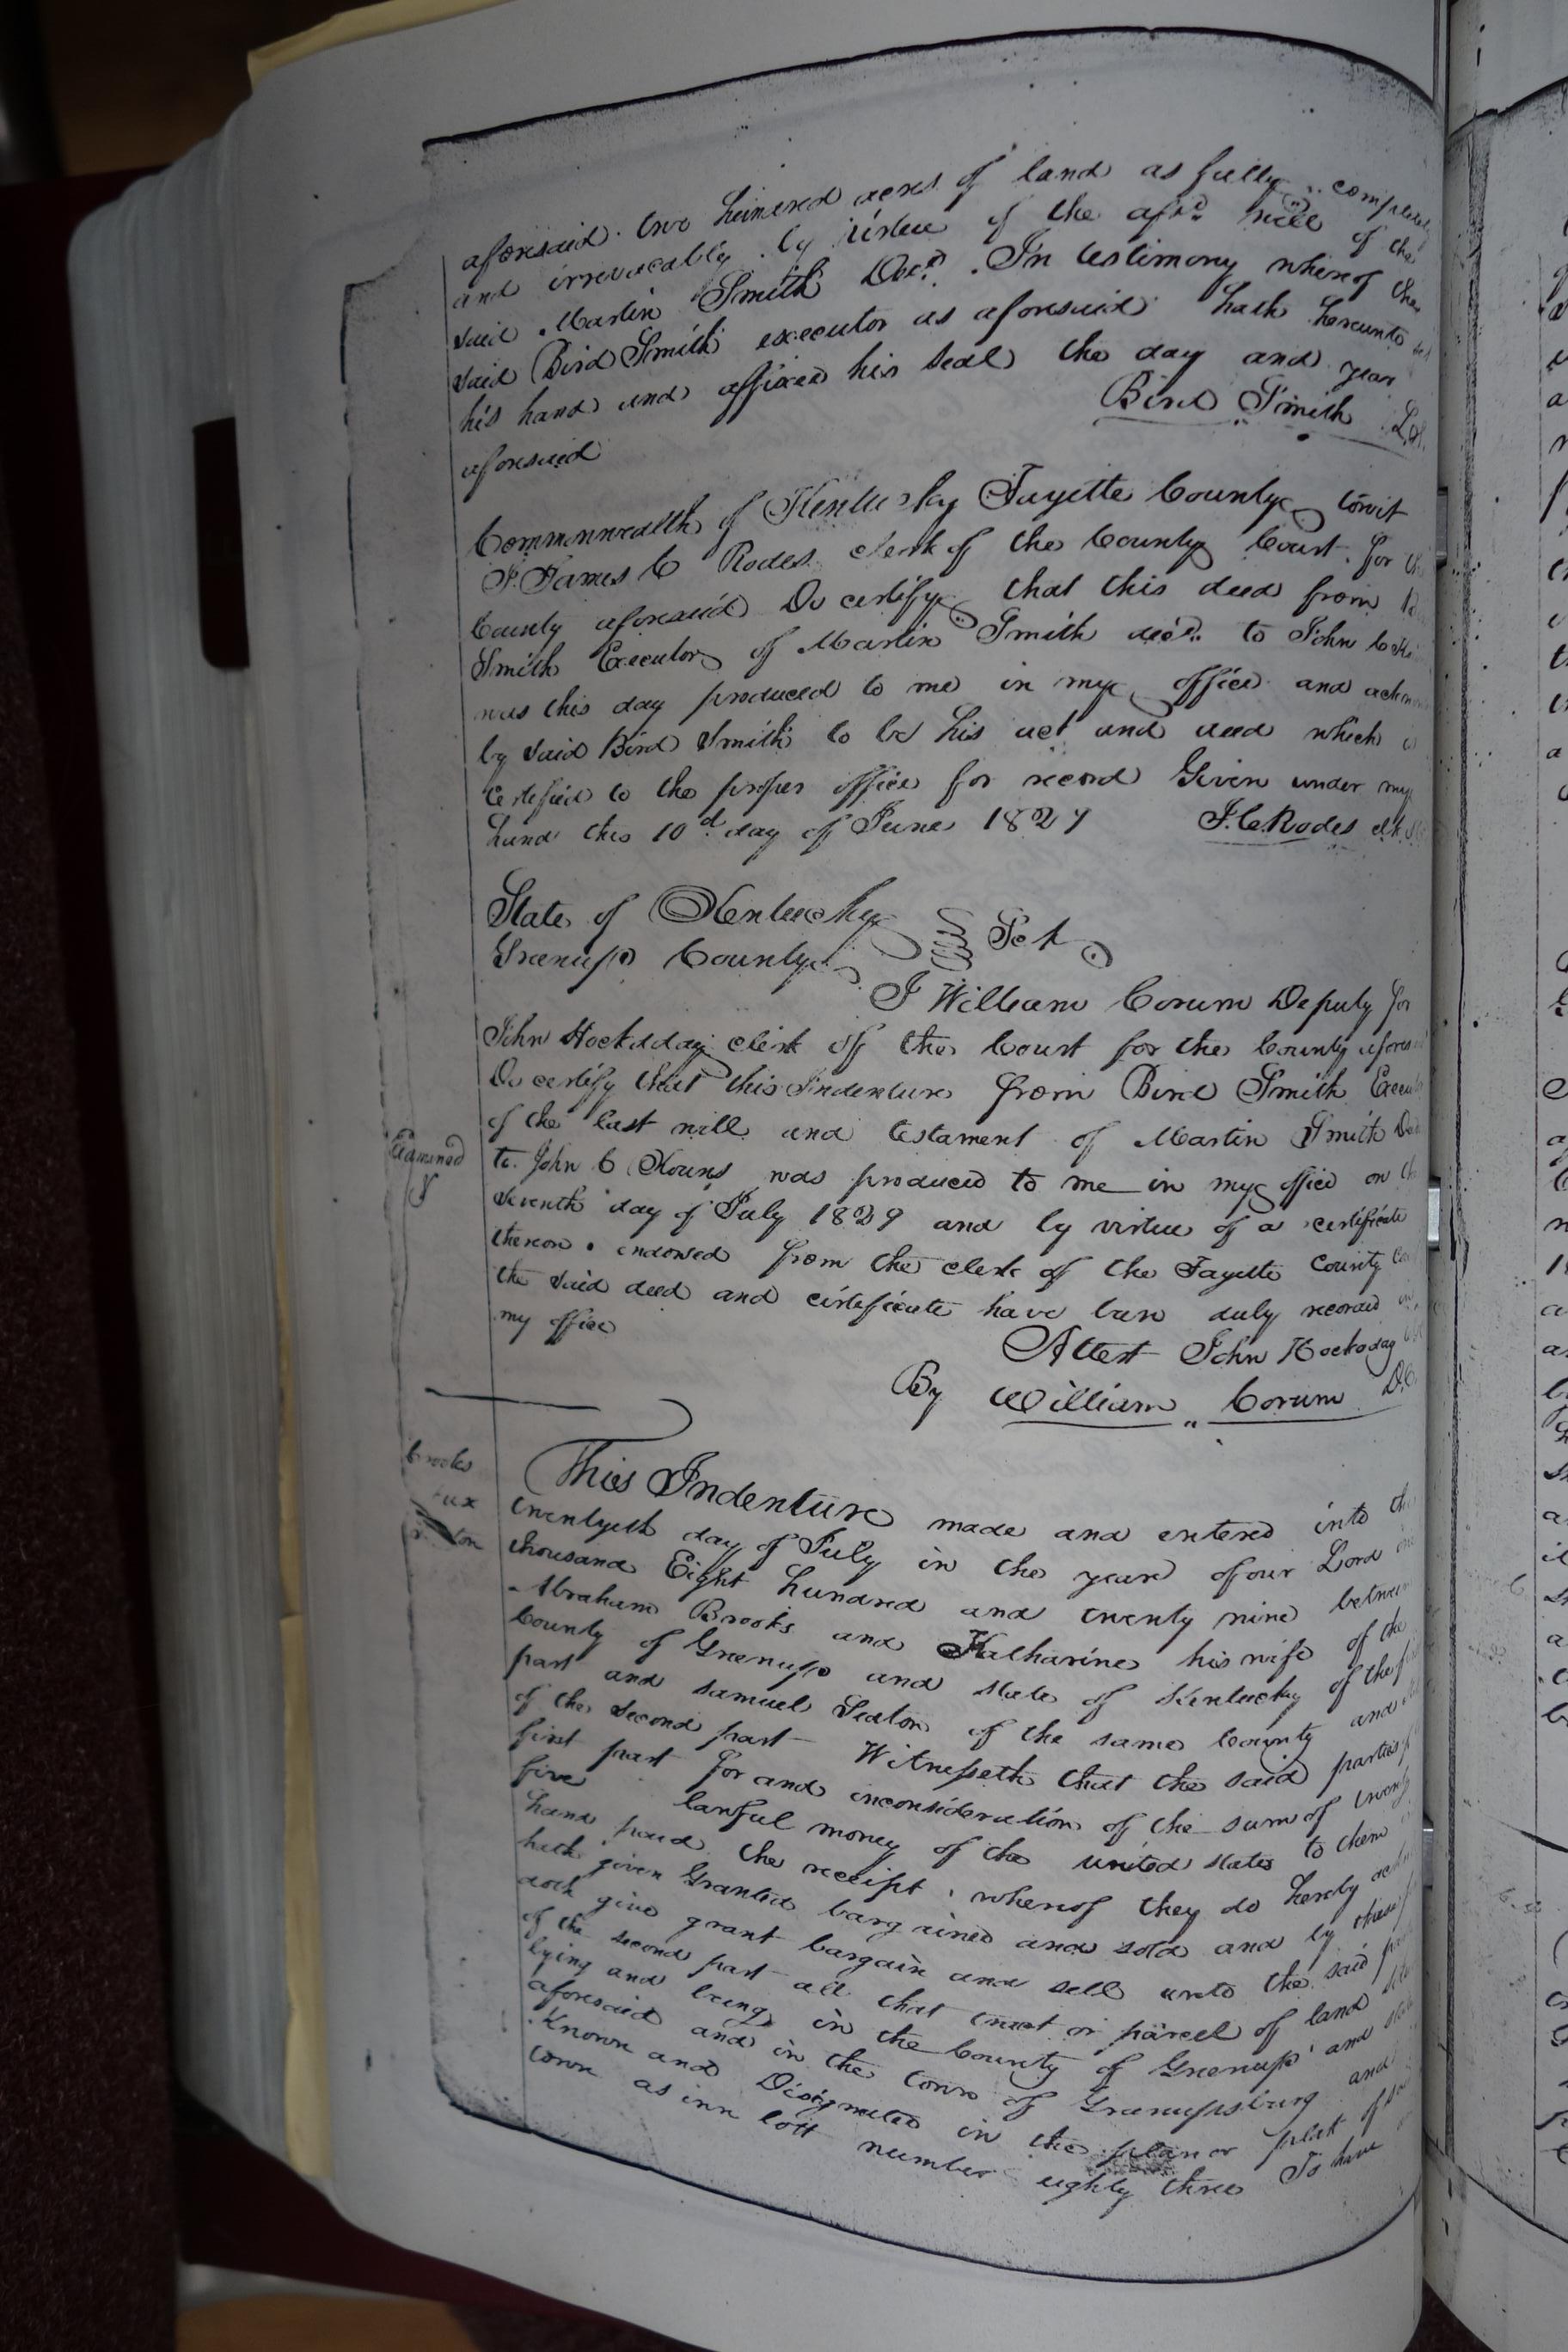 aforesaid two hundred acres of land as fully completely
and irrevocably by virtue of the afsd. will of the
said Martin Smith Decd. In testimony whereof the
said Bird Smith executor as aforesaid hath hereunto set
his hand and affixed his seal the day and year
aforesaid
Bird Smith
Commonwealth of Kentucky Fayette County towit
I James C Rodes clerk of the County Court for the
County aforesaid Do certify that this deed from
Smith Executor of Martin Smith decd. to John C
was this day produced to me in my office and
by said Bird Smith to be his act and deed which
Certified to the proper office for record Given under my
hand this 10d day of June 1829 J.C. Rodes clk
State of Kentucky
Greenup County Sct
I William Corum Deputy for
John Hockaday clerk of the Court for the County
Do certify that this Indenture from Bird Smith
of the last will and testament of Martin Smith
Examined
to John C Kouns was produced to me in my office on the
seventh day of July 1829 and by virtue of a certificate
thereon indorsed from the clerk of the Fayette County
the said deed and certificate have been duly recorded
my office
Attest John Hockaday
By William Corum D.C.
Brooks
& ux
This Indenture made and entered into the
twentyeth day of July in the year of our Lord one
thousand Eight hundred and twenty nine between
Abraham Brooks and Katharine his wife of the
County of Greenup and state of Kentucky of the
part and samuel Seaton of the same County and
of the second part Witnesseth that the said parties
first part for and inconsideration of the sum of twenty
five lawful money of the united states to them
hand paid the receipt whereof they do hereby
hath given Granted bargained and sold and by these
doth give grant bargain and sell unto the said
of the second part all that tract or parcel of land
lying and being in the County of Greenup and
aforesaid and in the town of Greenupsburg and
Known and Designated in the plan or plat of
town as inn lott number eighty three To have